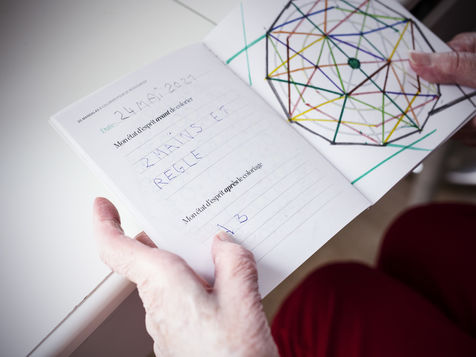 Date: 24 MAI 2021
Mon état d'esprit avant de colorier
2 MAINS ET
REGLE
Mon état d'esprit après le coloriage
13